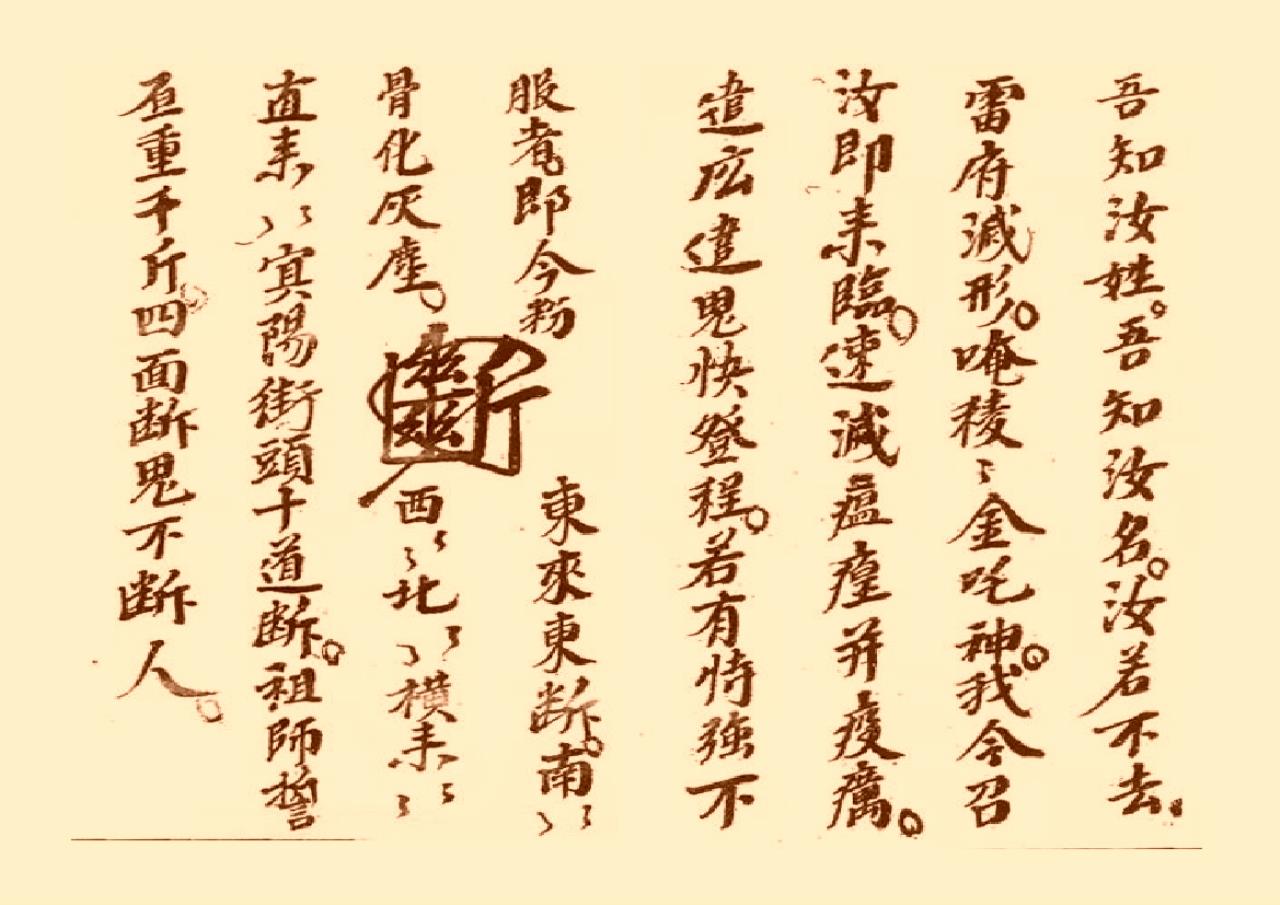 吾知汝姓。吾知汝名。汝若不去。
雷府滅形。唵稜〻金吒神。我今召
汝即耒臨。速滅瘟瘟并疫癘。
遣庅遣鬼快登程。若有恃強不
服者。即今粉
骨化灰塵。
斷
東來東断。南〻
西〻北〻橫耒〻
直耒〻冥陽街頭十道断。祖師誓
重千斤。四面断鬼不断人。